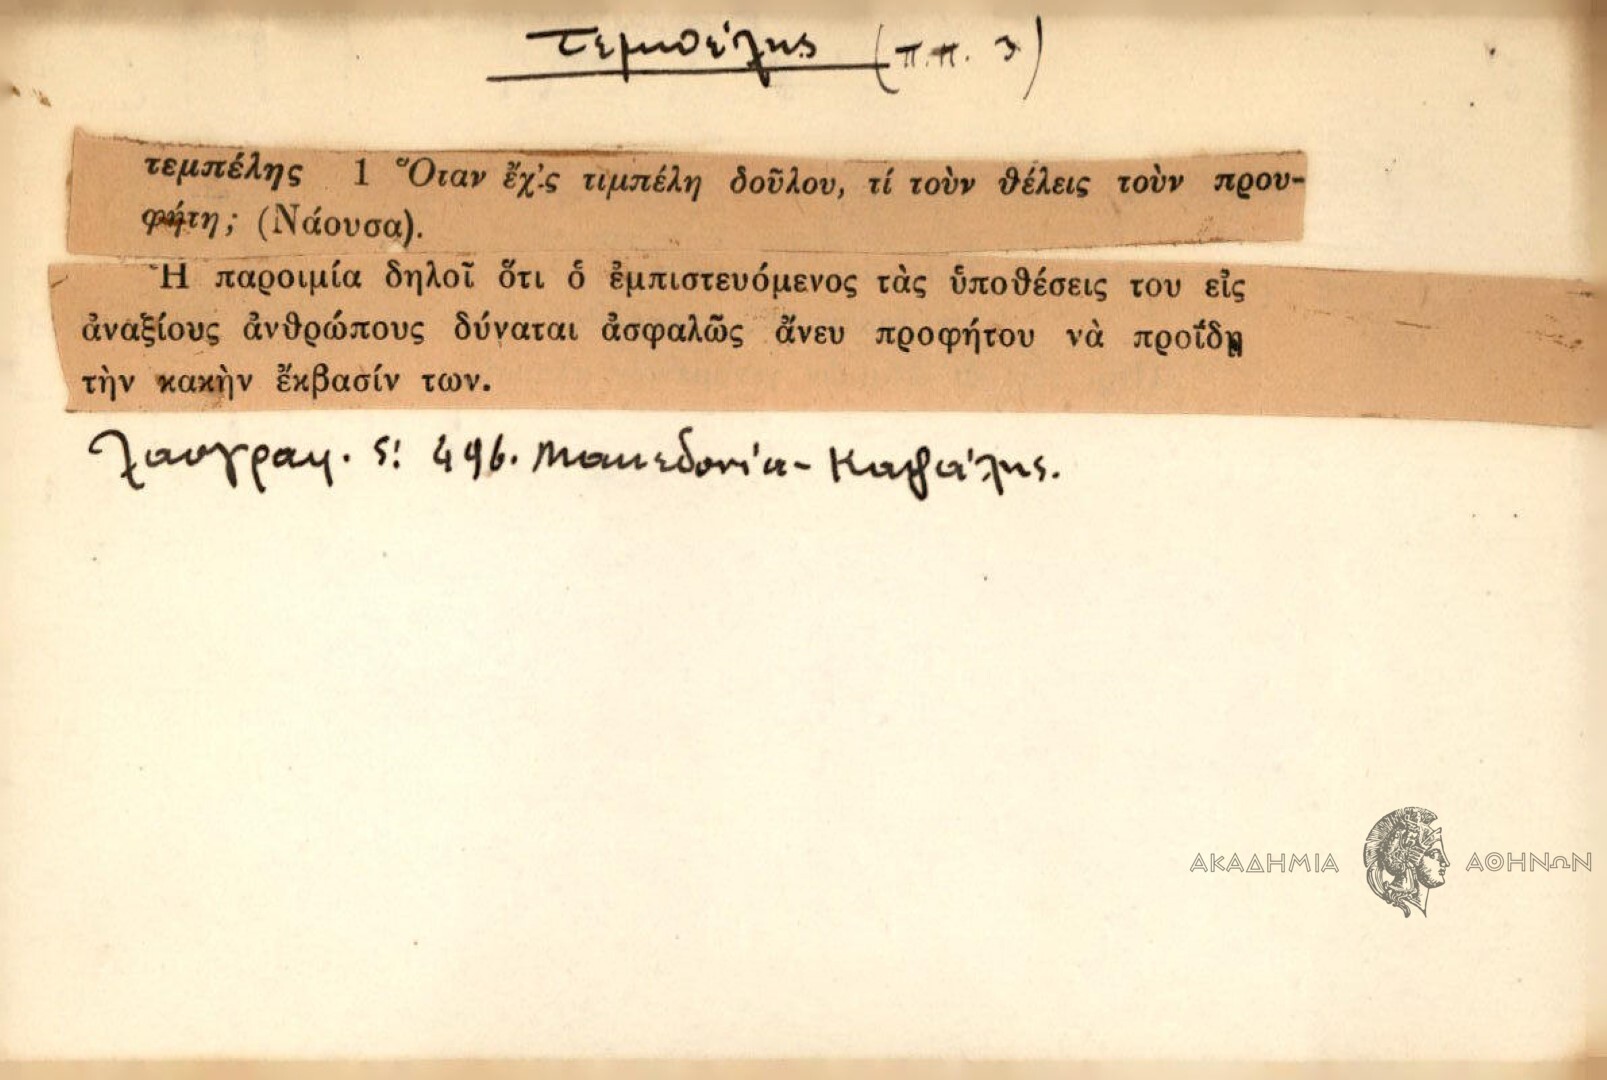 τεμπέλης (π.π. 3)
τεμπέλης 1 Ὅταν ἔχ'ς τιμπέλη δοῦλου, τί τοὺν θέλεις τοὺν πρου-
φήτη; (Νάουσα).
Ἡ παροιμία δηλοῖ ὅτι ὁ ἐμπιστευόμενος τὰς ὑποθέσεις του εἰς
ἀναξίους ἀνθρώπους δύναται ἀσφαλῶς ἄνευ προφήτου νὰ προΐδῃ
τὴν κακὴν ἔκβασίν των.
Λαογραφ. ς! 496. Μακεδονία -
ΑΚΑΔΗΜΙΑ ΑΘΗΝΩΝ